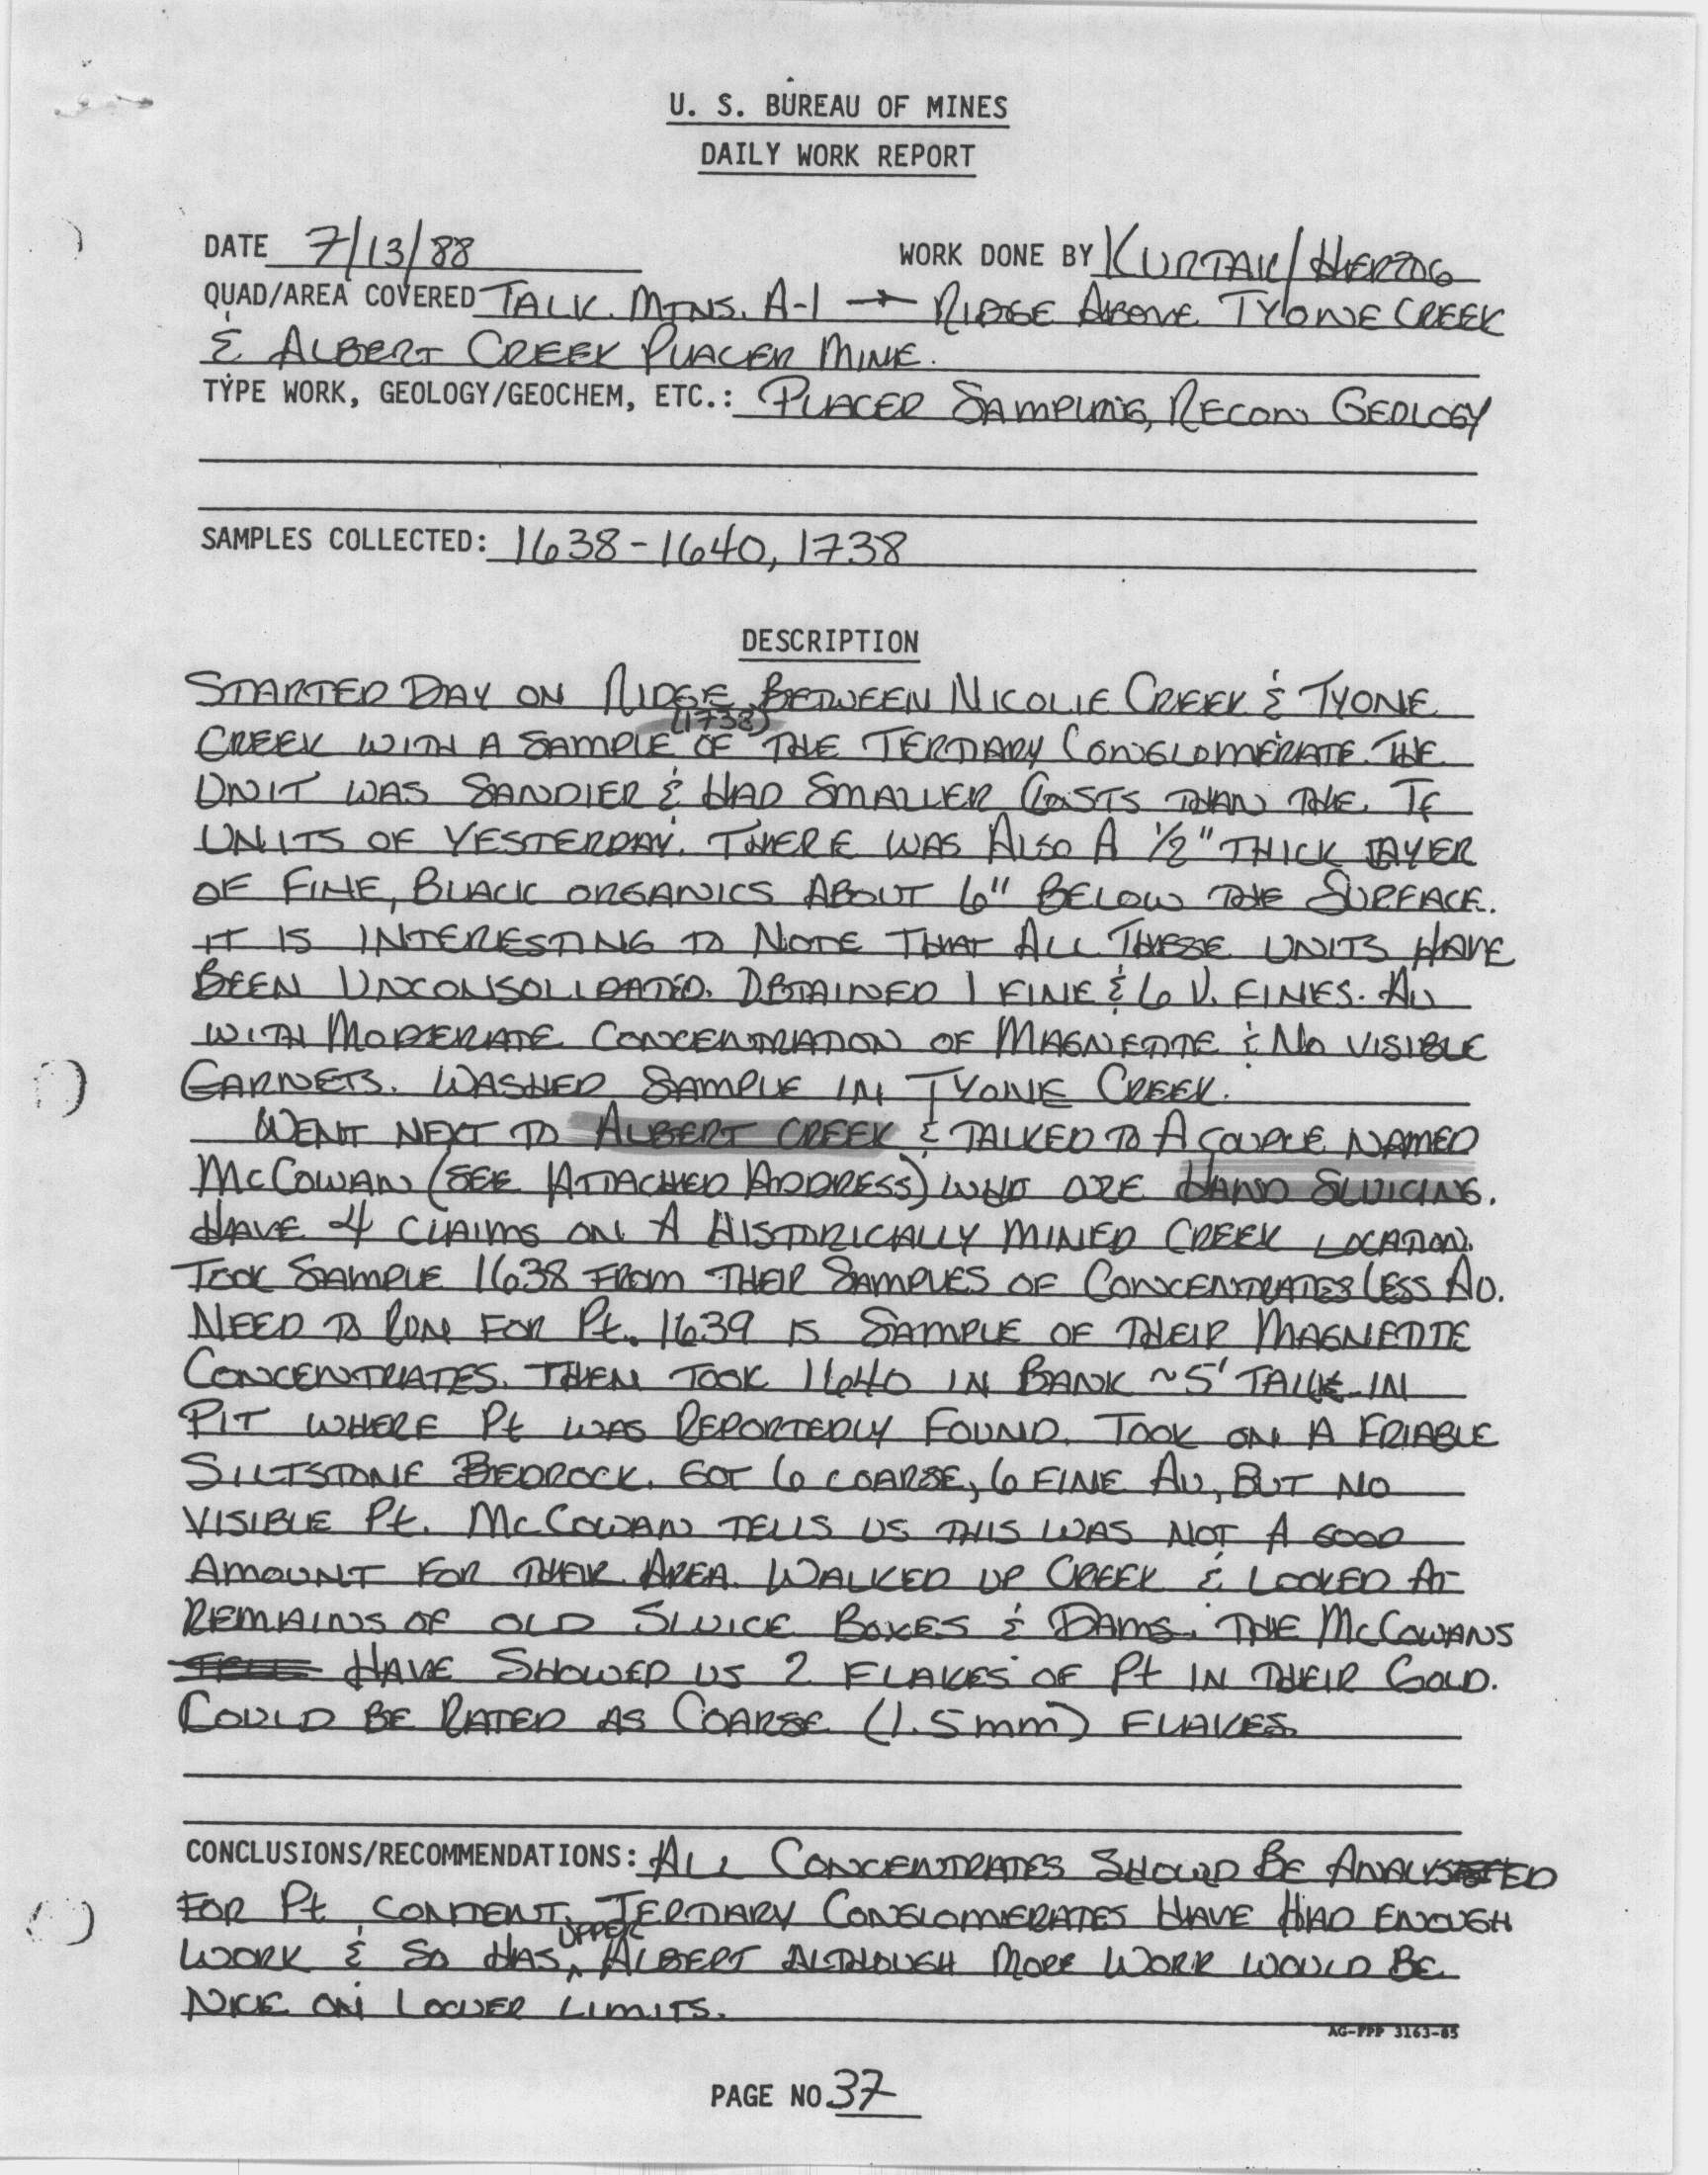 U. S. BUREAU OF MINES
DAILY WORK REPORT
DATE 7/13/88 WORK DONE BY KURTAK/HERZOG
QUAD/AREA COVERED TALK. MTNS. A-1 → RIDGE ABOVE TYONE CREEK
& ALBERT CREEK PLACER MINE.
TYPE WORK, GEOLOGY/GEOCHEM, ETC.: PLACER SAMPLING, RECON GEOLOGY
SAMPLES COLLECTED: 1638-1640, 1738
DESCRIPTION
STARTED DAY ON RIDGE BETWEEN NICOLIE CREEK & TYONE
CREEK WITH A SAMPLE (1738) OF THE TERTIARY CONGLOMERATE. THE
UNIT WAS SANDIER & HAD SMALLER CLASTS THAN THE Tf
UNITS OF YESTERDAY. THERE WAS ALSO A 1/2" THICK LAYER
OF FINE, BLACK ORGANICS ABOUT 6" BELOW THE SURFACE.
IT IS INTERESTING TO NOTE THAT ALL THESE UNITS HAVE
BEEN UNCONSOLIDATED. OBTAINED 1 FINE & 6 V. FINES. AU
WITH MODERATE CONCENTRATION OF MAGNETITE & NO VISIBLE
GARNETS. WASHED SAMPLE IN TYONE CREEK.
WENT NEXT TO ALBERT CREEK & TALKED TO A COUPLE NAMED
McCOWAN (SEE ATTACHED ADDRESS) WHO ARE HAND SLUICING.
HAVE 4 CLAIMS ON A HISTORICALLY MINED CREEK LOCATION.
TOOK SAMPLE 1638 FROM THEIR SAMPLES OF CONCENTRATES LESS AU.
NEED TO RUN FOR Pt. 1639 IS SAMPLE OF THEIR MAGNETITE
CONCENTRATES. THEN TOOK 1640 IN BANK ~5' TALL IN
PIT WHERE Pt WAS REPORTEDLY FOUND. TOOK ON A FRIABLE
SILTSTONE BEDROCK. GOT 6 COARSE, 6 FINE AU, BUT NO
VISIBLE Pt. McCOWAN TELLS US THIS WAS NOT A GOOD
AMOUNT FOR THEIR AREA. WALKED UP CREEK & LOOKED AT
REMAINS OF OLD SLUICE BOXES & DAMS. THE McCOWANS
HAVE SHOWED US 2 FLAKES OF Pt IN THEIR GOLD.
COULD BE RATED AS COARSE (1.5mm) FLAKES
CONCLUSIONS/RECOMMENDATIONS: ALL CONCENTRATES SHOULD BE ANALYSED
FOR Pt CONTENT. TERTIARY CONGLOMERATES HAVE HAD ENOUGH
WORK & SO HAS UPPER ALBERT ALTHOUGH MORE WORK WOULD BE
NICE ON LOWER LIMITS.
AG-PPP 3163-85
PAGE NO. 37